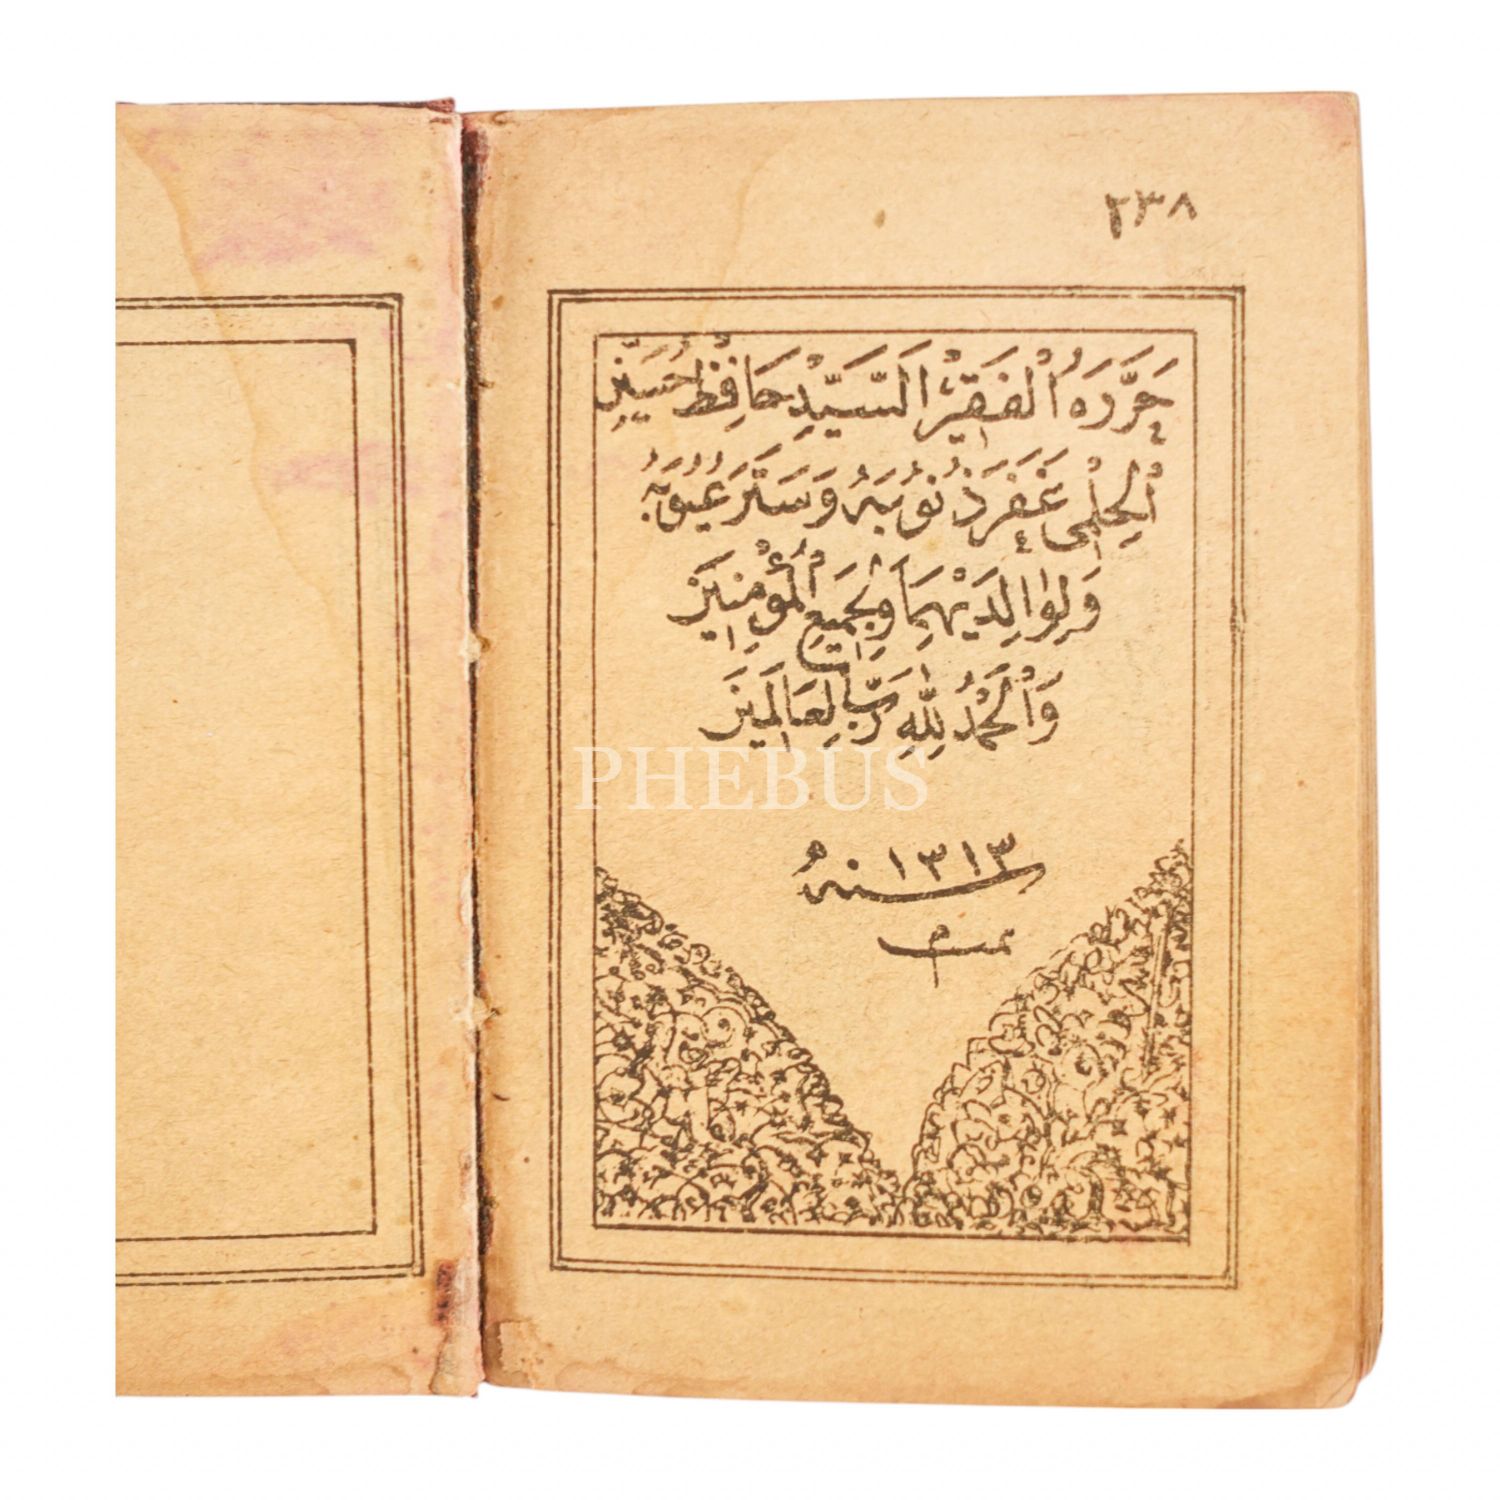 ٢٣٨
حَرَّرَهُ الْفَقِيرُ اَلسَّيِّدْ حَافِظْ حُسَيْنِ
الْحِلْمِى غَفَرَ ذُنُوبَهُ وَسَتَرَ عُيُوبَهُ
وَلِوَالِدَيْهِمَا وَلِجَمِيعِ الْمُؤْمِنِينَ
وَالْحَمْدُ لِلّٰهِ رَبِّ الْعَالَمِينَ
PHEBUS
سنه ١٣١٣